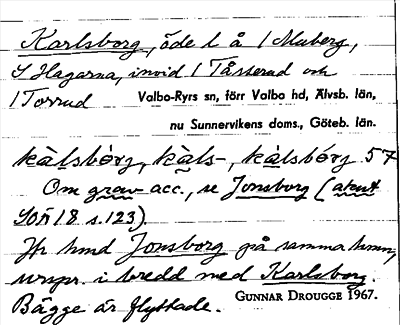 Karlsborg, öde l å 1 Muberg,
S Hagarna, invid 1 Tåsserud och
1 Torrud Valbo-Ryrs sn, förr Valbo hd, Älvsb. län,
nu Sunnervikens doms., Göteb. län.
kàlsbórg, kàls-, kàlsbórg 57
Om grav acc., se Jonsborg (akut
SOÄ 18 s.123)
Jfr hmd Jonsborg på samma hmn,
urspr. i bredd med Karlsborg.
Bägge är flyttade. GUNNAR DROUGGE 1967.